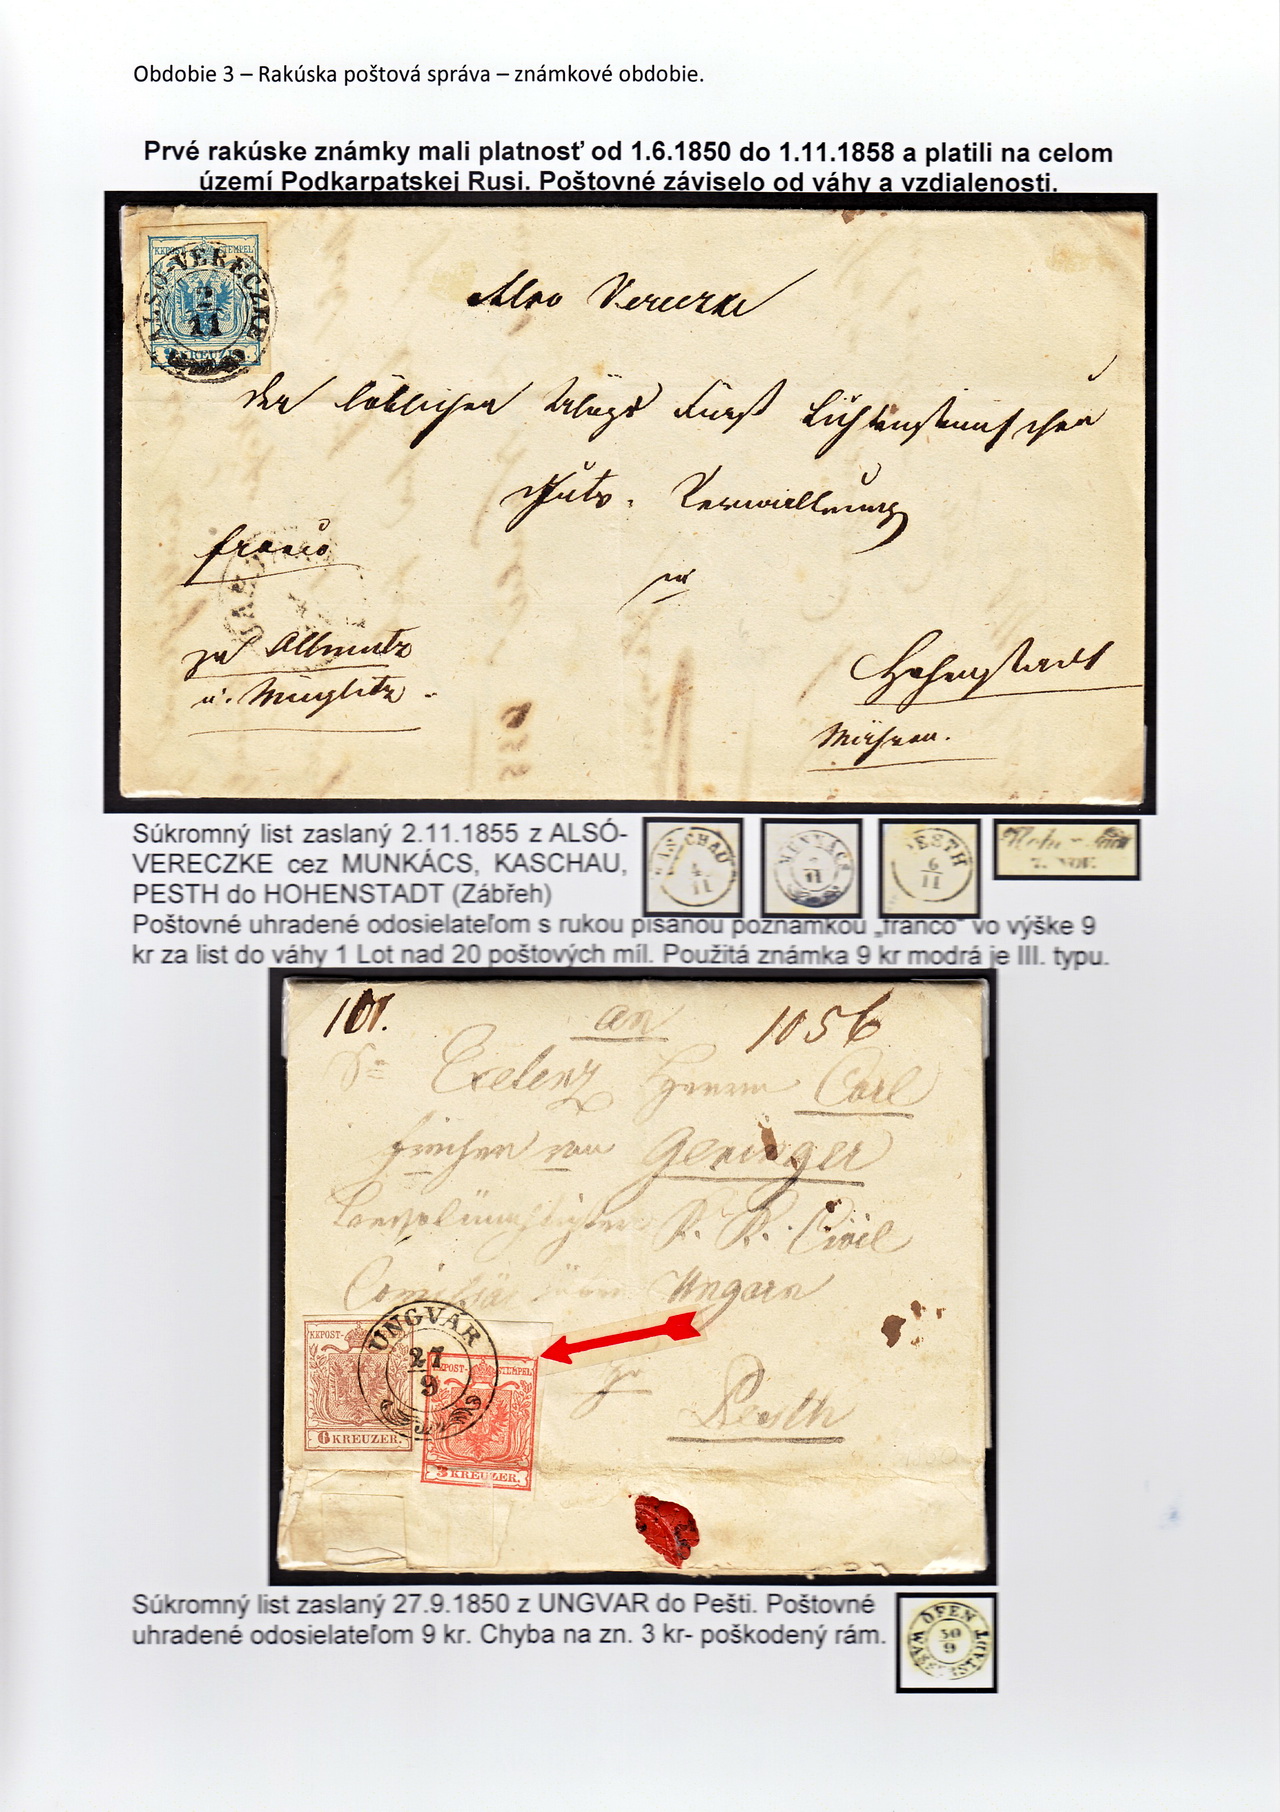 Obdobie 3 – Rakúska poštová správa – známkové obdobie.
Prvé rakúske známky mali platnosť od 1.6.1850 do 1.11.1858 a platili na celom
území Podkarpatskej Rusi. Poštovné záviselo od váhy a vzdialenosti.
KKPOST- STEMPEL
ALSÓ-VERECZKE
2
11
9 KREUZ
Also Vereczke
Der löblichen Fürst Lichtensteinischen
Guts-Verwaltung
franco
in
zu Ollmutz
u. Müglitz
Hohenstadt
Mähren.
Súkromný list zaslaný 2.11.1855 z ALSÓ-
VERECZKE cez MUNKÁCS, KASCHAU,
PESTH do HOHENSTADT (Zábřeh)
KASCHAU
4
11
MUNKÁCS
11
PESTH
6
11
7. NOV.
Poštovné uhradené odosielateľom s rukou písanou poznámkou „franco" vo výške 9
kr za list do váhy 1 Lot nad 20 poštových míl. Použitá známka 9 kr modrá je III. typu.
101.
an
1056
Sr Exelenz Herrn Carl
von Geringer
K. K. Civil
Ungarn
KKPOST-
UNGVÁR
27
9
6 KREUZER.
KKPOST- STEMPEL
3 KREUZER.
zu
Pesth
Súkromný list zaslaný 27.9.1850 z UNGVAR do Pešti. Poštovné
uhradené odosielateľom 9 kr. Chyba na zn. 3 kr- poškodený rám.
OFEN
30
9
WASSERSTADT